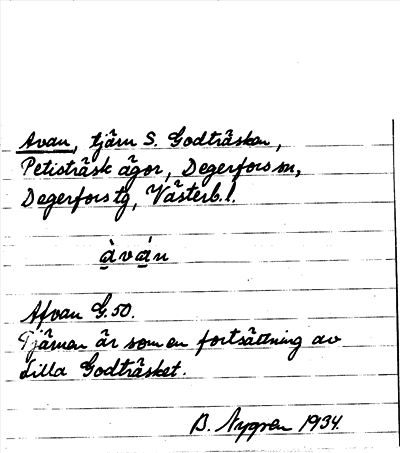 Avan, tjärn S. Godträsken,
Petisträsk ägor, Degerfors sn,
Degerfors tg, Västerb. l.
a̱̍và̱n
Afvan G.50.
Tjärnen är som en fortsättning av
Lilla Godträsket.
B. Nygren 1934.